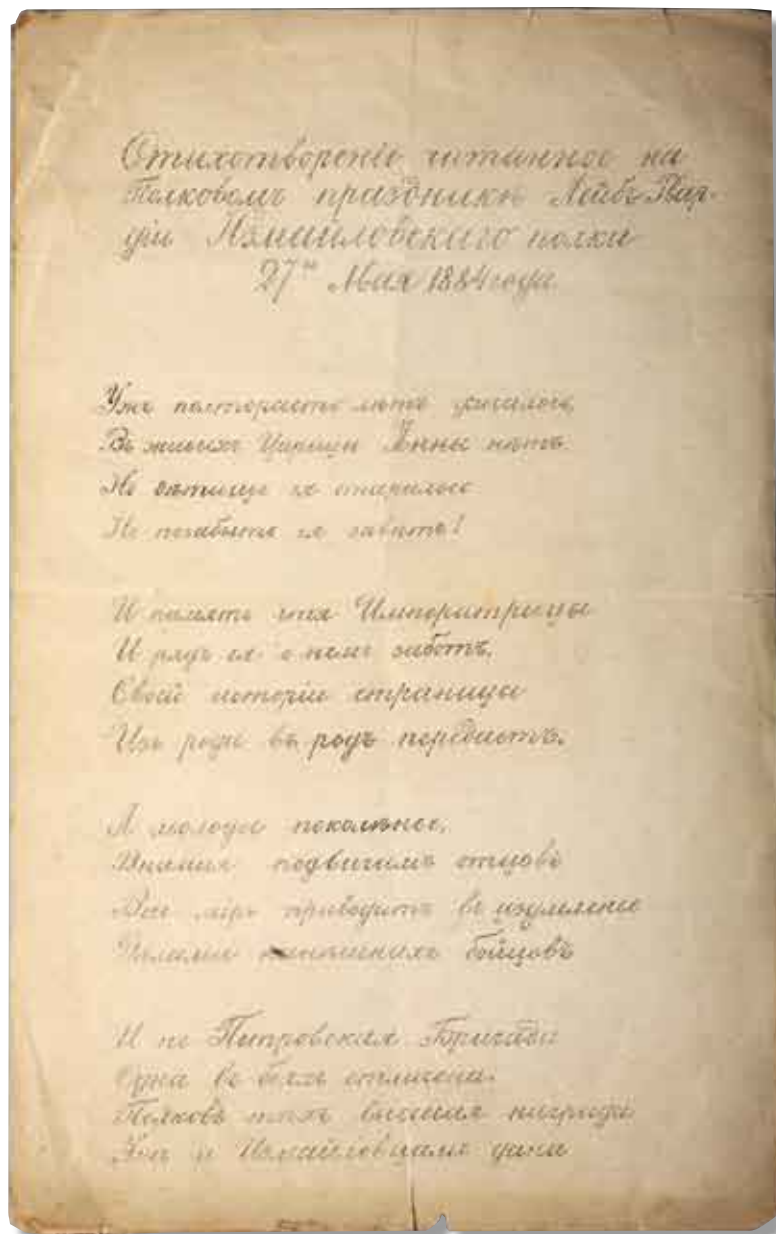 Стихотвореніе читанное на
Полковомъ праздникѣ Лейбъ Гвар-
діи Измайловскаго полка
27го Мая 1884 года.
Ужъ полтораста лѣтъ
Въ живыхъ Царицы Анны нѣтъ
Но дѣтище ея
Не позабытъ ея завѣтъ!
И память чтя Императрицы
И рядъ ея о немъ заботъ,
Своей исторіи страницы
Изъ рода въ родъ передаетъ.
А молодое поколѣнье,
Внимая подвигамъ отцовъ
Весь міръ приводитъ въ изумленье
нынѣшнихъ бойцовъ
И не Петровская Бригада
Одна въ бояхъ отличена.
Полковъ тѣхъ высшая награда
и Измайловцамъ дана